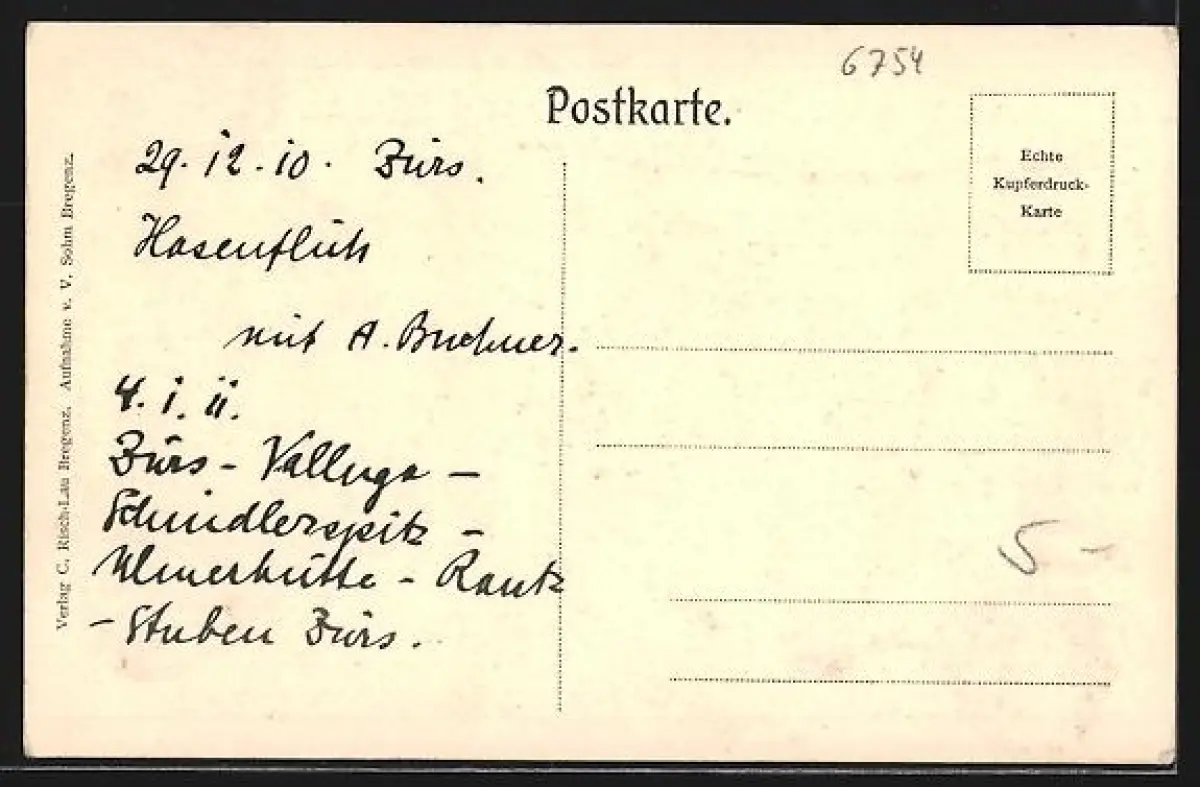 6754
Postkarte.
Echte
Kupferdruck-
Karte
29.12.10. Zürs.
Hasenflüh
mit A. Buchner.
4.1.11.
Zürs - Valluga -
Schindlerspitz -
Ulmerhütte - Rautz
- Stuben Zürs.
5-
Verlag C. Risch-Lau Bregenz. Aufnahme v. V. Sohm Bregenz.